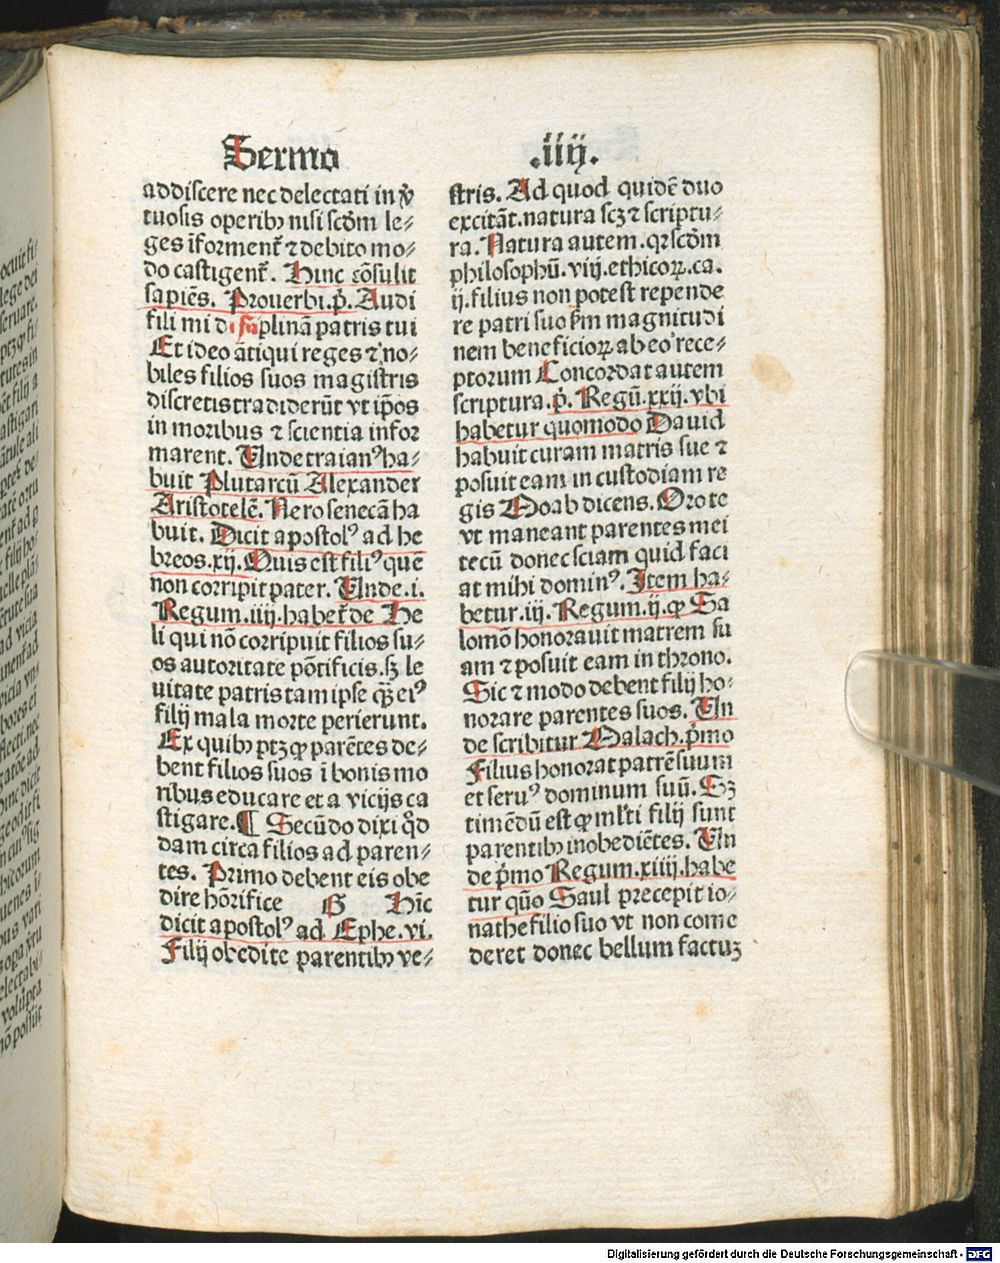 Sermo .iiij.
addiscere nec delectati in v̾
tuosis operibꝫ nisi scd̄m le⸗
ges īforment᷑ ⁊ debito mo⸗
do castigent᷑. Hinc cōsulit
sapiēs. Prouerbi .p̄. Audi
fili mi disciplinā patris tui
Et ideo ātiqui reges ⁊ no⸗
biles filios suos magistris
discretis tradiderūt vt ip̄os
in moribus ⁊ scientia infor
marent. Unde traianꝰ ha⸗
buit Plutarcū Alexander
Aristotelē. Nero senecā ha
buit. Dicit apostolꝰ ad he
breos .xij. Quis est filiꝰ quē
non corripit pater. Unde .i.
Regum .iiij. habet᷑ de He
li qui nō corripuit filios su⸗
os autoritate pōtificis. sꝫ le
uitate patris tam ipse qꝫ̄ eiꝰ
filij mala morte perierunt.
Ex quibꝫ ptꝫ ꝙ parētes de⸗
bent filios suos ī bonis mo
ribus educare et a vicijs ca
stigare. ¶ Secūdo dixi q̄d
dam circa filios ad paren⸗
tes. Primo debent eis obe
dire hōrifice B Hīc
dicit apostolꝰ ad Ephe .vi.
Filij obedite parentibꝫ ve⸗
stris. Ad quod quidē duo
excitāt. natura scꝫ ⁊ scriptu⸗
ra. Natura autem. qꝛ scd̄m
philosophū .viij. ethicoꝝ .ca.
ij. filius non potest repende
re patri suo s̄m magnitudi
nem beneficioꝝ ab eo rece⸗
ptorum Concordat autem
scriptura .p̄. Regū .xxij. vbi
habetur quomodo Dauid
habuit curam matris sue ⁊
posuit eam in custodiam re
gis Moab dicens. Oro te
vt maneant parentes mei
tecū donec sciam quid faci
at mihi dominꝰ. Item ha⸗
betur .iij. Regum .ij. ꝙ Sa
lomō honorauit matrem su
am ⁊ posuit eam in throno.
Sic ⁊ modo debent filij ho⸗
norare parentes suos. Un
de scribitur Malach. p̄mo
Filius honorat patrē suum
et seruꝰ dominum suū. Sꝫ
timēdū est ꝙ ml̄ti filij sunt
parentibꝫ inobediētes. Un
de p̄mo Regum .xiiij. habe
tur quō Saul precepit io⸗
nathe filio suo vt non come
deret donec bellum factuꝫ
ocuit fi⸗
lege dei
seruare.
Digitalisierung gefördert durch die Deutsche Forschungsgemeinschaft - DFG